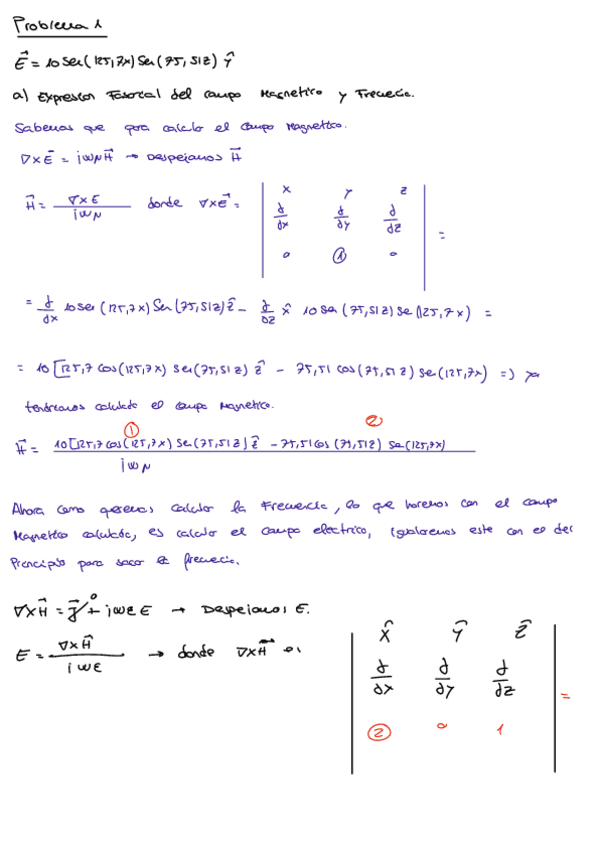 Problema 1
E⃗ = 10 Sen(125,7x) Sen(75,51z) Ŷ
a) Expresion Fasorial del campo Magnetico y Frecuencia.
Sabemos que para calcular el Campo Magnético.
∇×E⃗ = iωμH⃗ → Despejamos H⃗
H⃗ = ∇×E / iωμ donde ∇×E⃗ = | x y z | d/dx d/dy d/dz | 0 ① 0 | =
= d/dx 10 sen(125,7x) Sen(75,51z) ẑ - d/dz x̂ 10 sen(75,51z) sen(125,7x) =
= 10 [125,7 cos(125,7x) sen(75,51z) ẑ - 75,51 cos(75,51z) sen(125,7x) => ya
tendríamos calculado el campo Magnetico.
① ②
H⃗ = 10[125,7 cos(125,7x) sen(75,51z] ẑ - 75,51 cos(75,51z) sen(125,7x) / iωμ
Ahora como queremos calcular la Frecuencia, lo que haremos con el campo
Magnetico calculado, es calcular el campo electrico, igualaremos este con el del
Principio para sacar la frecuencia.
∇×H⃗ = J⃗ 0 + iωεE → Despejamos E.
E = ∇×H⃗ / iωε → donde ∇×H⃗ es | X̂ Ŷ Ẑ | d/dx d/dy d/dz | ② 0 1 | =